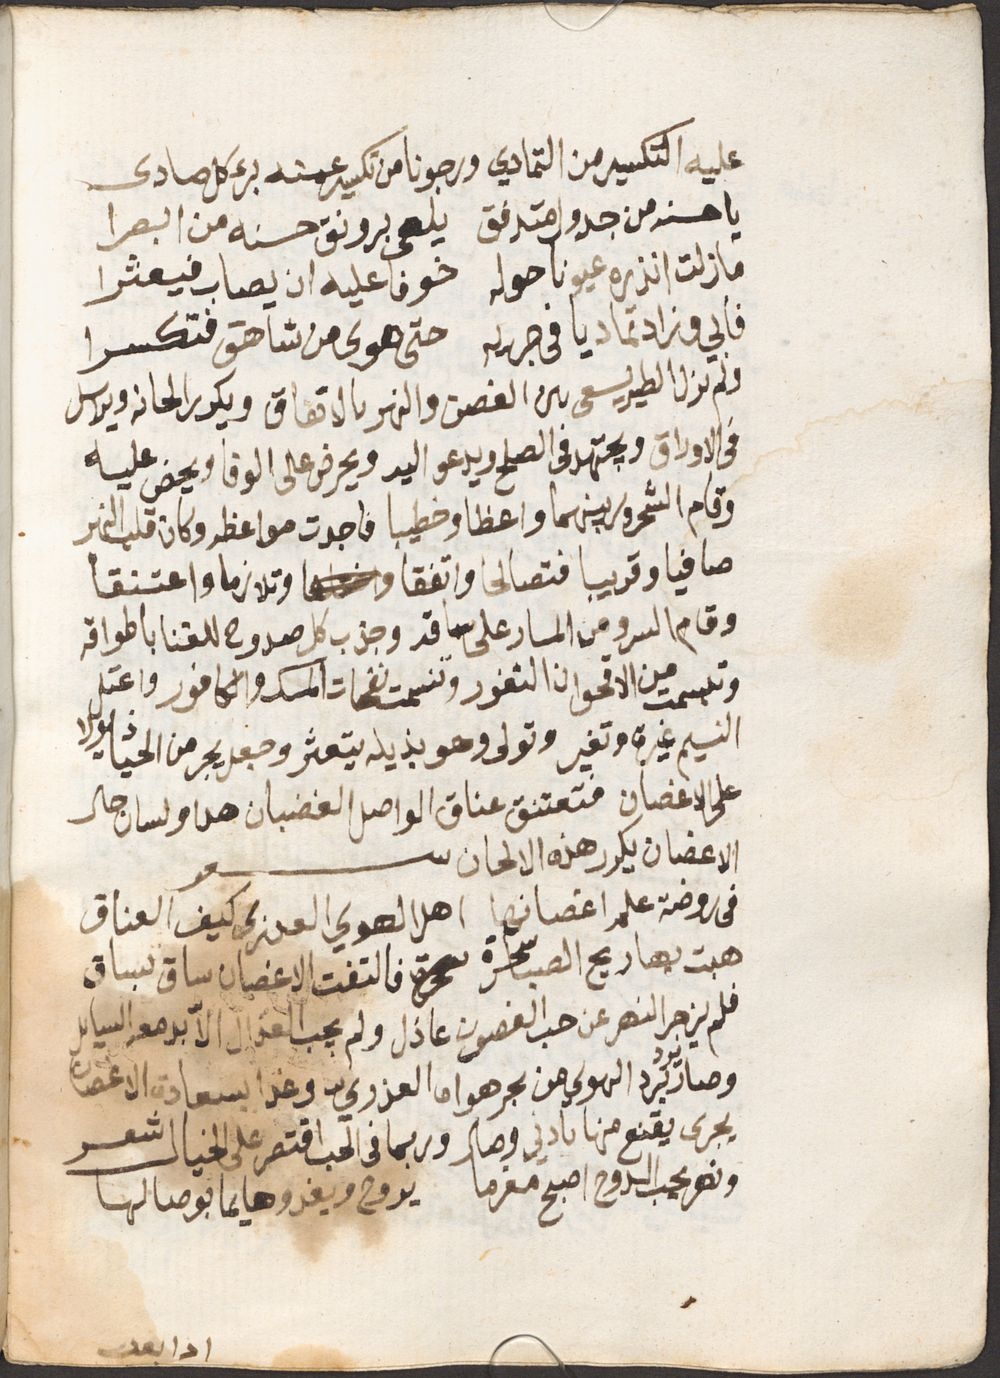 عليه التكسير من التمادي ورجونا من تكسير عمته برء كل صادى
يا حسنه من جدول متدفق يلهى برونق حسنه من ابصرا
مازلت انذره عيونا حوله خوفا عليه ان يصاب فيعثرا
فأبي وزاد تماديا في جريه حتى هوى من شاهق فتكسرا
ولم تزل الطير يسعى بين الغصن والنهر بالاتفاق ويكرر الحانه ويراسل
في الاوراق ويجتهد في الصلح ويدعو اليه ويحرض على الوفا ويحض عليه
وقام الشحرور بينهما واعظا وخطيبا فاجدت مواعظه وكان قلب النهر
صافيا وقريبا فتصالحا واتفقا وتلازما واعتنقا
وقام السرو من المسار على ساقه وجذب كل صدوح للغنا باطواقه
وتبسمت من الاقحوان الثغور وتنسمت نفحات المسك والكافور واعتل
النسيم غيرة وتغير وتولى وهو بذيله يتعثر وجعل يجر من الحيا ذيولا
على الاغصان فتعتنق عناق الواصل الغضبان هدا ولسان حال
الاغضان يكرر هذه الالحان شعر
في روضة علم اغصانها اهل الهوي العذري كيف العناق
هبت بها ريح الصبا سحرة فالتفت الاغضان ساق بساق
فلم يزجر النهر عن حب الغصون عاذل ولم يجب العذال الا بدمعه السايل
وصار يرد الهوي من بحر هواه العذري وغدا بسعادة الاغصان
يجرى يقنع منها بادني وصال وربما في الحب اقتصر على الخيال شعر
ونهر بحب الدوح اصبح مغرما يروح ويغدو هايما بوصالها
اذا بعدت